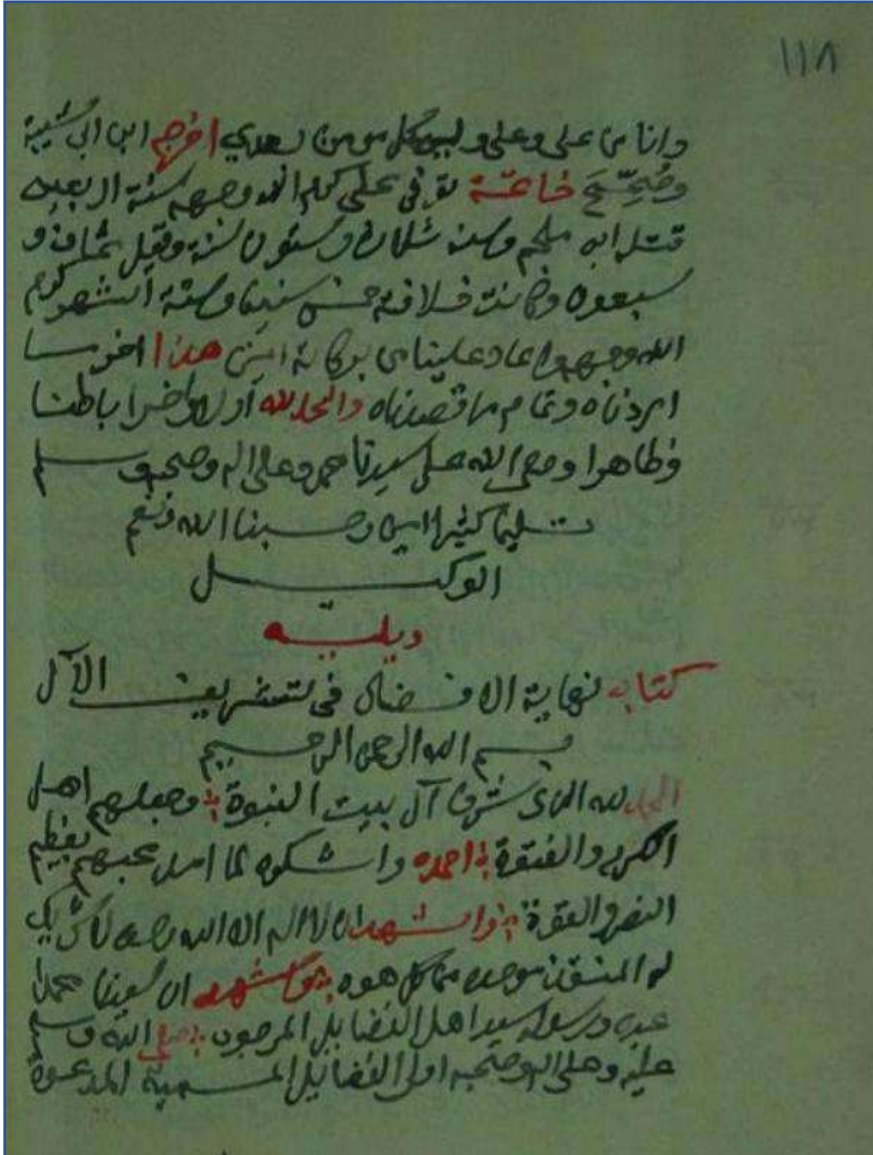 ١١٨
وانا من علي وعلي ولي كل مومن بعدي اخرج ابن ابي شيبة
وصحح خاتمة توفي علي كرم الله وجهه سنة اربعين
قتله ابن ملجم وسنه ثلاث وستون سنة وقيل ثمان و
سبعون وكانت خلافته خمس سنين وستة اشهر كرم
الله وجهه واعاد علينا من بركاته امين هذا اخر ما
اردناه وتمام ما قصدناه والحمد لله اولا واخرا باطنا
وظاهرا وصلى الله على سيدنا محمد وعلى اله وصحبه وسلم
تسليما كثيرا امين وحسبنا الله ونعم
الوكيل
ويليه
كتاب نهاية الافضال في تشريف الآل
بسم الله الرحمن الرحيم
الحمد لله الذي شرف آل بيت النبوة وجعلهم اهل
الكرم والفتوة احمده واشكره لما امد محبهم بعظيم
النصر والقوة واشهد ان لا اله الا الله وحده لا شريك
له المنقذ موحده من كل هوه واشهد ان سيدنا محمدا
عبده ورسوله سيد اهل الفضايل المرجون صلى الله وسلم
عليه وعلى اله وصحبه اولي الفضايل